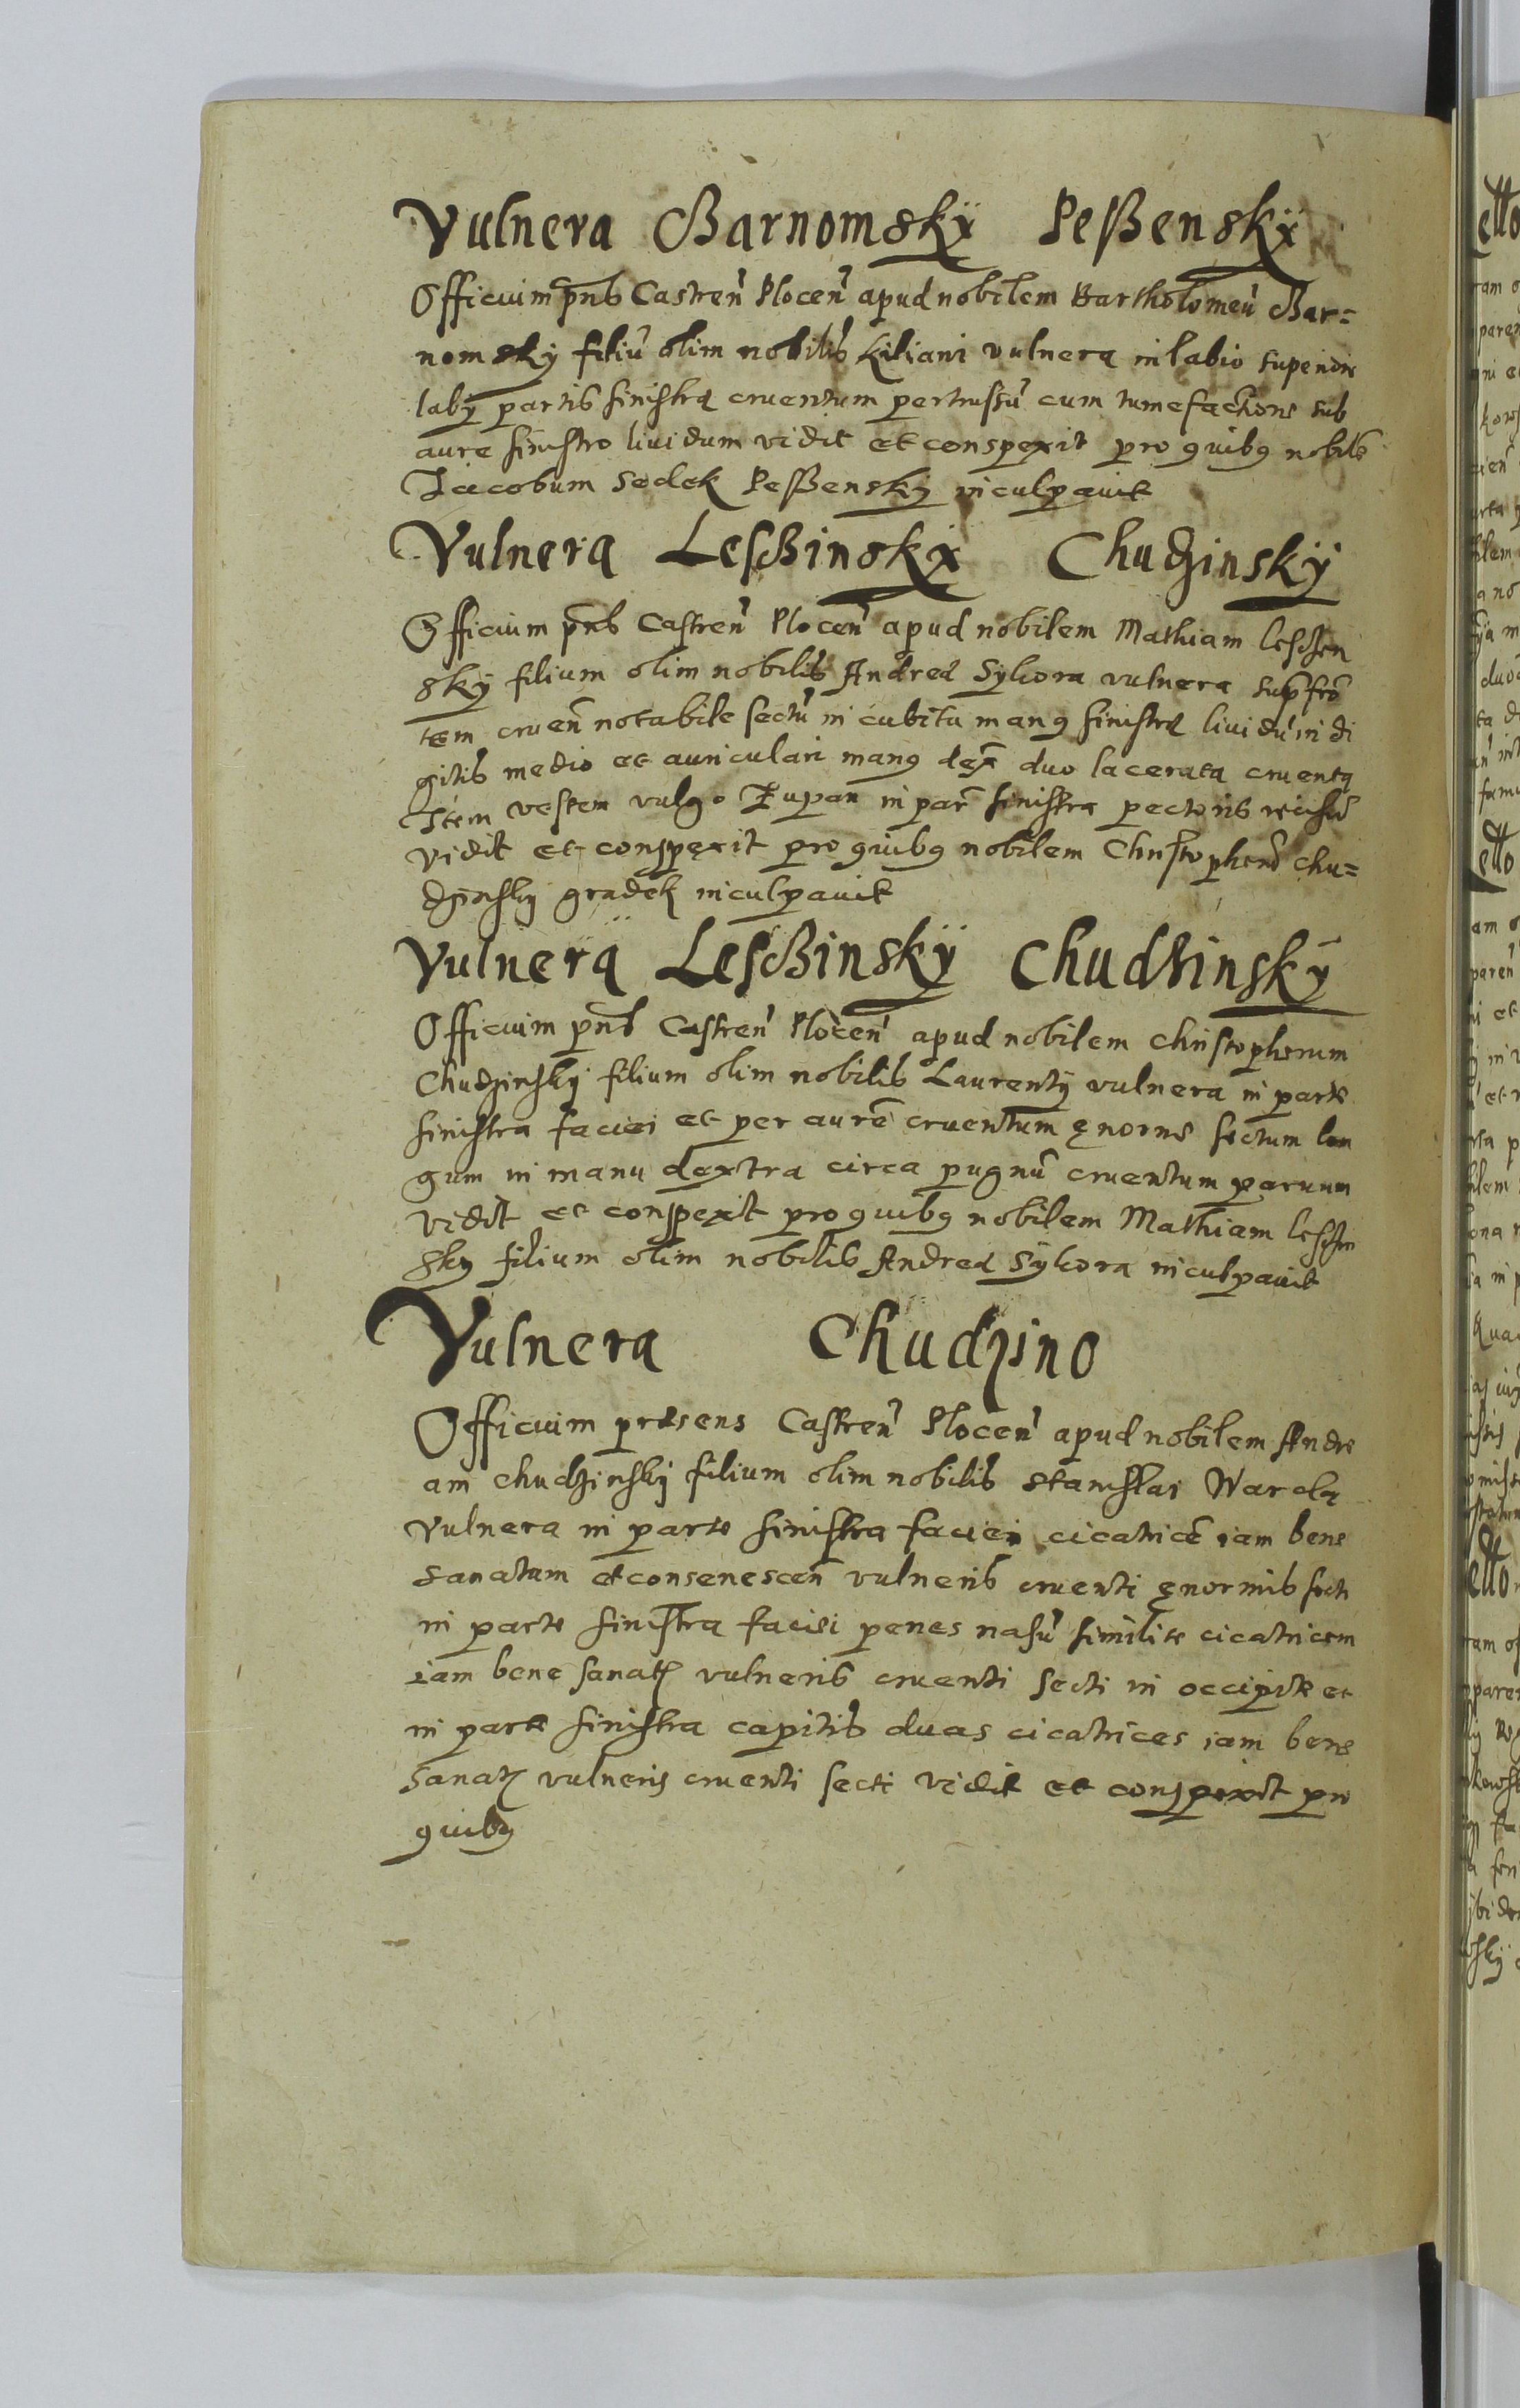 Vulnera Barnomskÿ Peßenskÿ
Officium pn̄s Castren̄ Plocen̄ apud nobilem Bartholomeū Bar=
nomskÿ filiū olim nobilis Kiliani vulnera in labio superioris
labÿ partis sinistrę cruentum pertrussū cum tumefactione sub
aure sinistro liuidum vidit et conspexit pro quibꝯ nobilē
Jacobum Sedek Peßenskÿ inculpauit
Vulnera Lesßinskÿ Chudzinskÿ
Officium pn̄s Castren̄ Plocen̄ apud nobilem Mathiam Leschen
skÿ filium olim nobilis Andreæ Sykora vulnera sup̄ fron̄
tem cruen̄ notabile sectū in cubitu manꝯ sinistrę liuidū in di
gitis medio et auriculari manꝯ dex̄ duo lacerata cruenta
Item vestem vulgo Zupan in par̄ sinistra pectoris recisū
vidit et conspexit pro quibꝯ nobilem Christopherū Chu=
dzinskÿ gradek inculpauit
Vulnera Lesßinskÿ Chudzinskÿ
Officium pn̄s Castren̄ Plocen̄ apud nobilem Christopherum
Chudzinskÿ filium olim nobilis Laurentÿ vulnera in parte
sinistra faciei et per aurē cruentum ęnorme sectum lon
gum in manu dextra circa pugnū cruentum paruum
vidit et conspexit pro quibꝯ nobilem Mathiam Leschen
skÿ filium olim nobilis Andreæ Sÿkora inculpauit
Vulnera Chudzino
Officium præsens Castren̄ Plocen̄ apud nobilem Andre
am Chudzinskÿ filium olim nobilis Stanislai
Vulnera in parte sinistra faciei cicatricē iam bene
sanatam et consenescen̄ vulneris cruenti ęnormis secti
in parte sinistra faciei penes nasū similite cicatricem
iam bene sanatꝫ vulneris cruenti secti in occipite et
in parte sinistra capitis duas cicatrices iam bene
sanatꝫ vulneris cruenti secti vidit et conspexit pro
quibꝯ